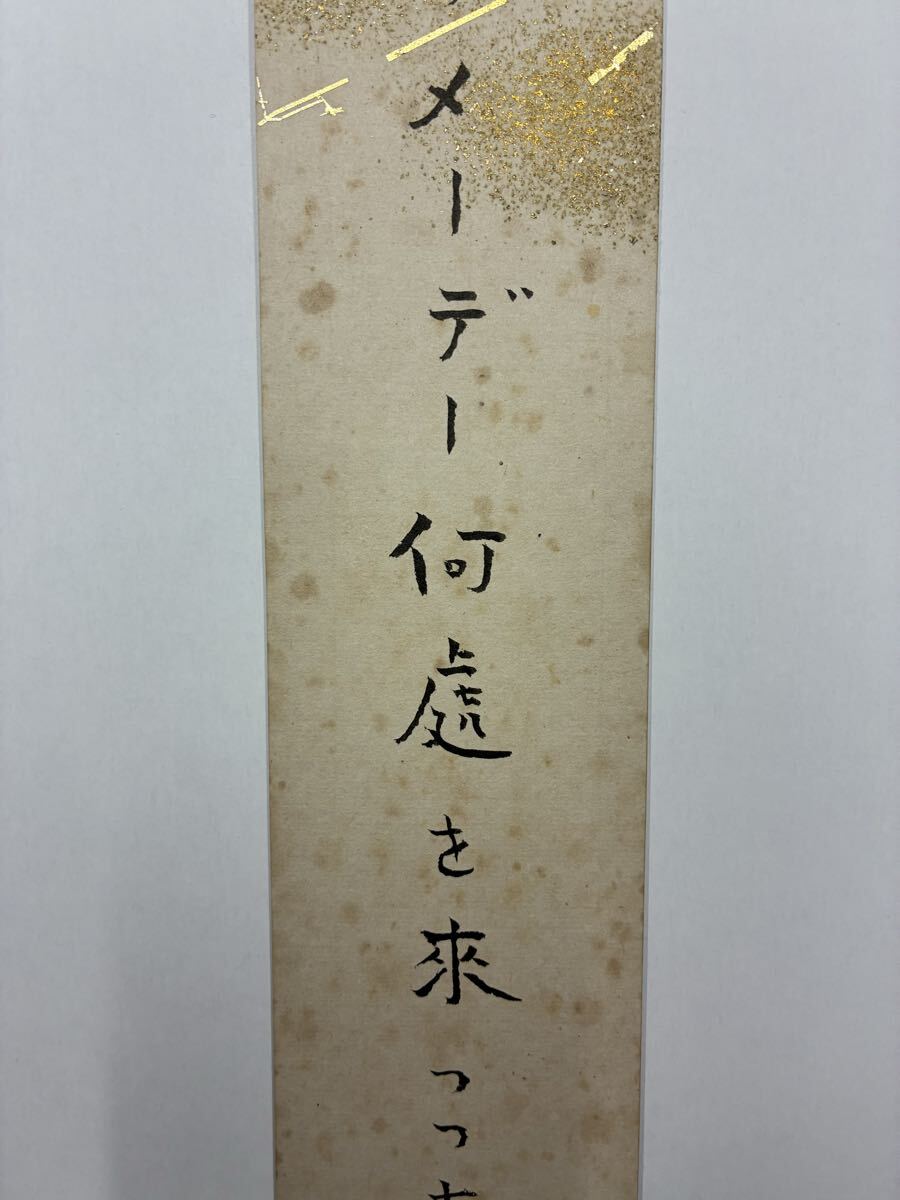 メーデー何處を來つつ